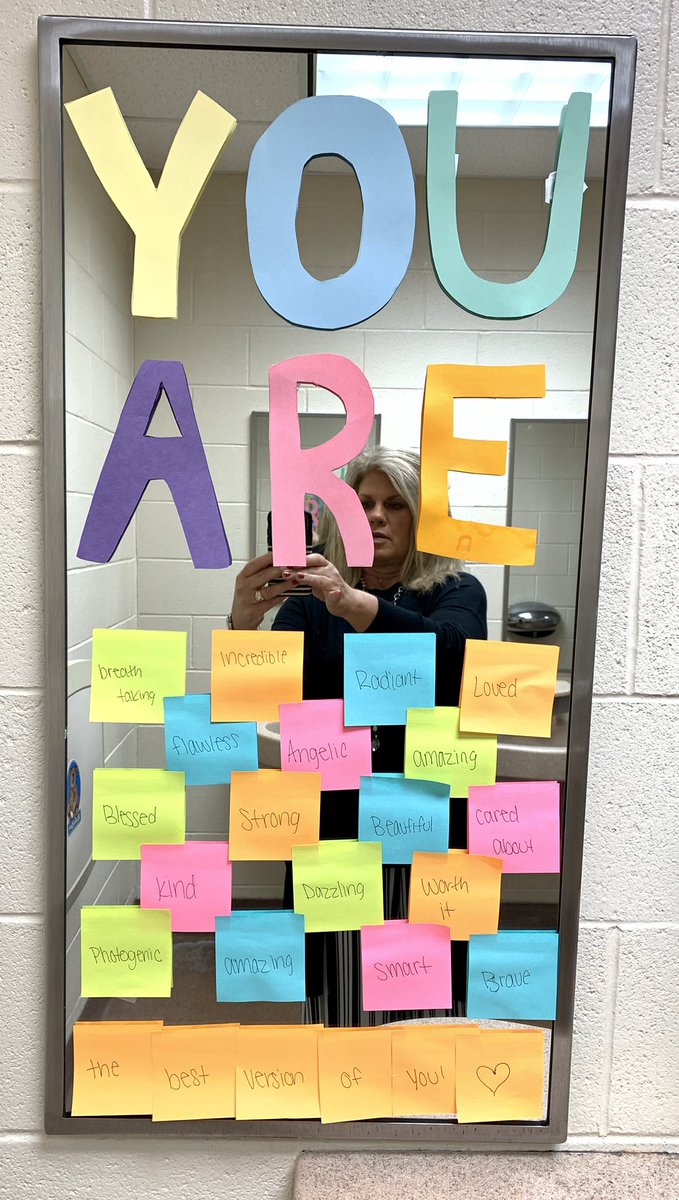 YOU
ARE
breath
taking
Incredible
Radiant
Loved
flawless
Angelic
amazing
Blessed
Strong
Beautiful
cared
about
kind
Dazzling
Worth
it
Photogenic
amazing
Smart
Brave
the best version of You! ♡